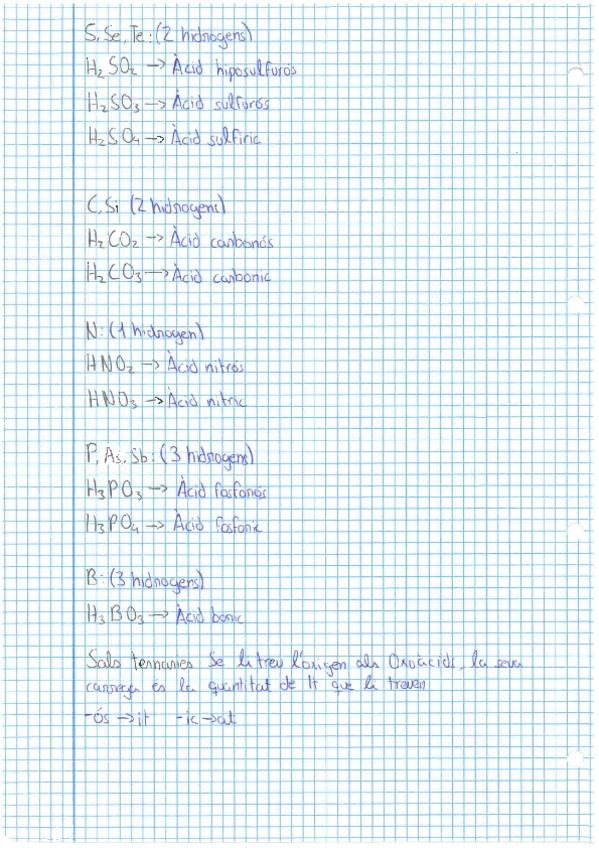 S, Se, Te: (2 hidrogens)
H₂SO₂ → Àcid hiposulfurós
H₂SO₃ → Àcid sulfurós
H₂SO₄ → Àcid sulfúric
C, Si (2 hidrogens)
H₂CO₂ → Àcid carbonós
H₂CO₃ → Àcid carbonic
N: (1 hidrogen)
HNO₂ → Àcid nitrós
HNO₃ → Àcid nitric
P, As, Sb: (3 hidrogens)
H₃PO₃ → Àcid fosforós
H₃PO₄ → Àcid fosforic
B: (3 hidrogens)
H₃BO₃ → Àcid boric
Sals ternaries Se li treu l'oxigen als Oxoàcids, la seva
carrega és la quantitat de H que li treuen
-ós → it -ic → at